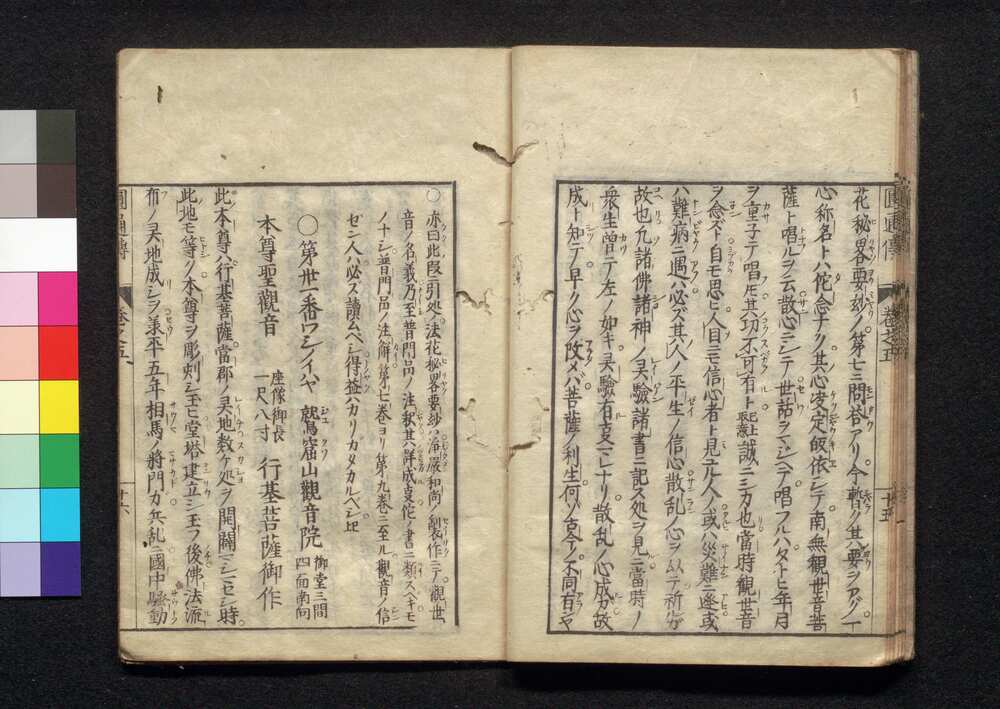 花秘畧要鈔ノ第七ニ問答アリ今暫ク其要ヲアグ一
心称名トハ佗念ナク其心决定㱕依シテ南無観世音菩
薩ト唱ルヲ云散心ニシテ世話ヲマジヘテ唱フルハタトヒ年月
ヲ重子テ唱ノ其功不可有ト已上取意誠ニシカ也當時觀世音
ヲ念ズト自モ思ヒ人目ニモ信心者ト見ユル人ノ或ハ災難ニ逢或
ハ難病ニ遇ハ必ズ其人ノ平生ノ信心散乱ノ心ヲ以テ祈ルガ
故也凡諸佛諸神ノ灵驗諸書ニ記ス処ヲ見ニ當時ノ
衆生曽テ左ノ如キ灵驗有支マレナリ散乱ノ心成カ故
成ト知テ早ク心ヲ改メハ菩薩ノ利生何ゾ古今ノ不同有ヤ
圓通傳 巻之五 十五
○亦曰此段ニ引処ノ法花秘畧要鈔ハ浄嚴和尚ノ製作ニテ觀世
音ノ名義乃至普門品ノ注釈其外詳成叓佗ノ書ニ類スベキモ
ノナシ普門品ノ注解ハ第七巻ヨリ第九巻ニ至ル觀音ノ信
ゼン人ハ必ズ讀ムベシ得益ハカリガタカルベシ
○第丗一番ワシノイハヤ 鷲窟山觀音院 御堂三間四面南向
本尊聖觀音 座像御長一尺八寸 行基菩薩御作
此本尊ハ行基菩薩當郡ノ灵地数ケ処ヲ開闢マシマセシ時
此地モ等ク本尊ヲ彫刻シ玉ヒ堂塔建立シ玉フ後佛法流
布ノ灵地成シヲ兼平五年相馬ノ將門カ兵乱ニ國中騒動
圓通傳 巻之五 十六